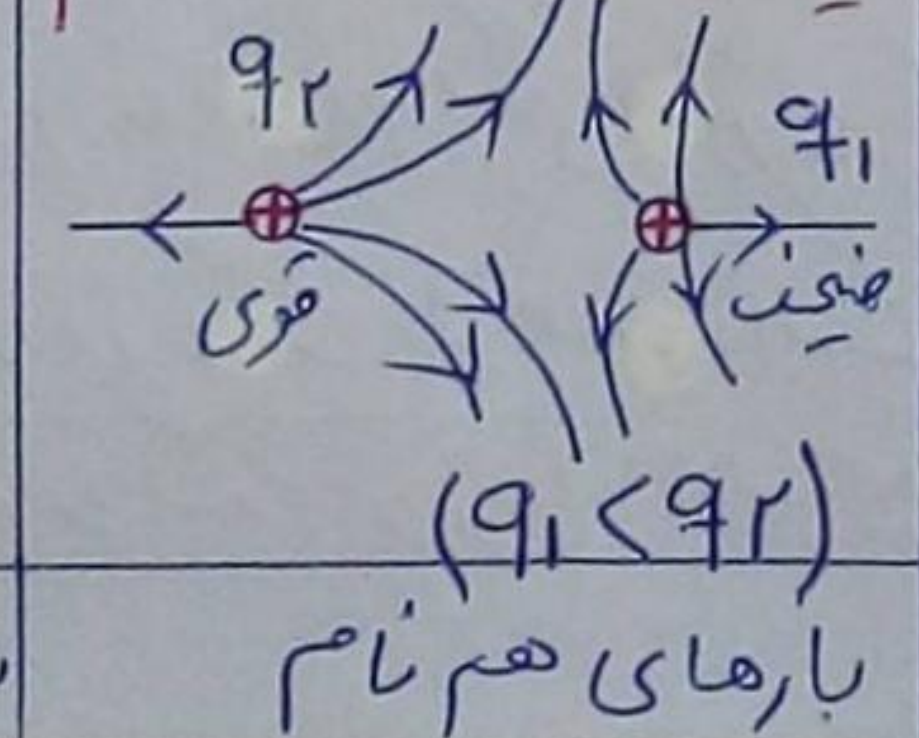 q۲
q۱
قوی
ضعیف
(q۱ < q۲)
بارهای هم نام